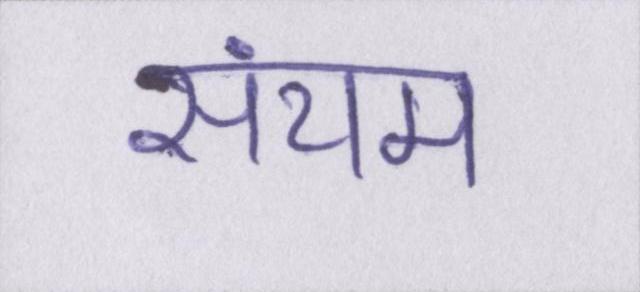 संयम